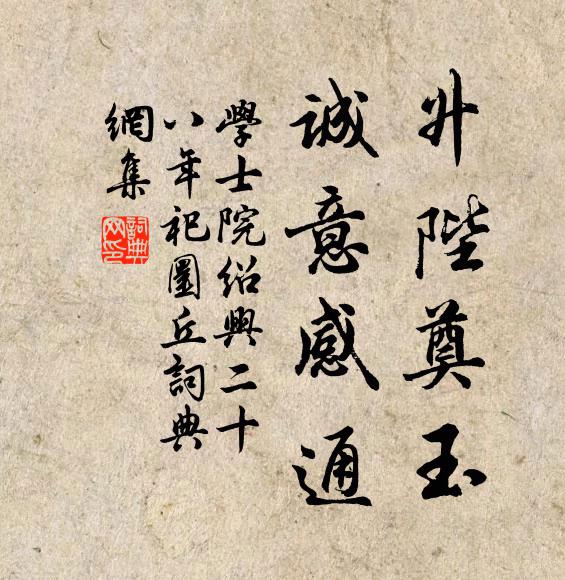 升陛奠玉
誠意感通
學士院紹興二十
八年祀圜丘詞典
網集
詞典
网印